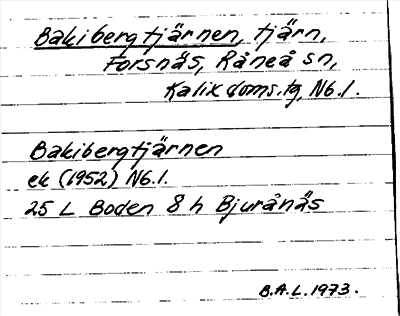 Bakibergtjärnen, tjärn,
Forsnäs, Råneå sn,
Kalix doms.tg, Nb.l.
Bakibergtjärnen
ek (1952) Nb.l.
25 L Boden 8 h Bjurånäs
B.A.L. 1973.